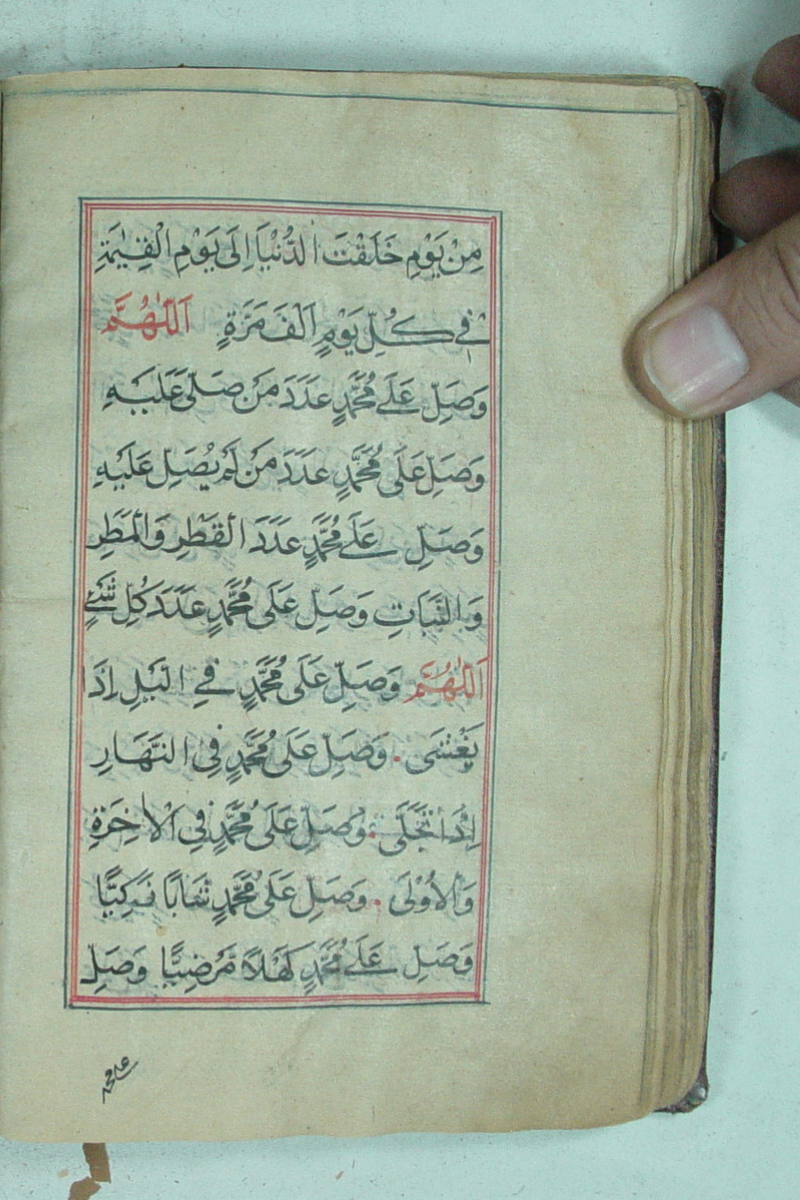 مِنْ يَوْمِ خَلَقْتَ الدُّنْيَا اِلَى يَوْمِ الْقِيٰمَةِ
فِي كُلِّ يَوْمٍ اَلْفَ مَرَّةٍ اَللّٰهُمَّ
وَصَلِّ عَلَى مُحَمَّدٍ عَدَدَ مَنْ صَلَّى عَلَيْهِ
وَصَلِّ عَلَى مُحَمَّدٍ عَدَدَ مَنْ لَمْ يُصَلِّ عَلَيْهِ
وَصَلِّ عَلَى مُحَمَّدٍ عَدَدَ الْقَطْرِ وَالْمَطَرِ
وَالنَّبَاتِ وَصَلِّ عَلَى مُحَمَّدٍ عَدَدَ كُلِّ شَيْءٍ
اَللّٰهُمَّ وَصَلِّ عَلَى مُحَمَّدٍ فِي الَّيْلِ اِذَا
يَغْشَى . وَصَلِّ عَلَى مُحَمَّدٍ فِي النَّهَارِ
اِذَا تَجَلَّى . وَصَلِّ عَلَى مُحَمَّدٍ فِي الْاٰخِرَةِ
وَالْاُوْلَى . وَصَلِّ عَلَى مُحَمَّدٍ شَابًّا زَكِيًّا
وَصَلِّ عَلَى مُحَمَّدٍ كَهْلًا مَرْضِيًّا وَصَلِّ
على محمد